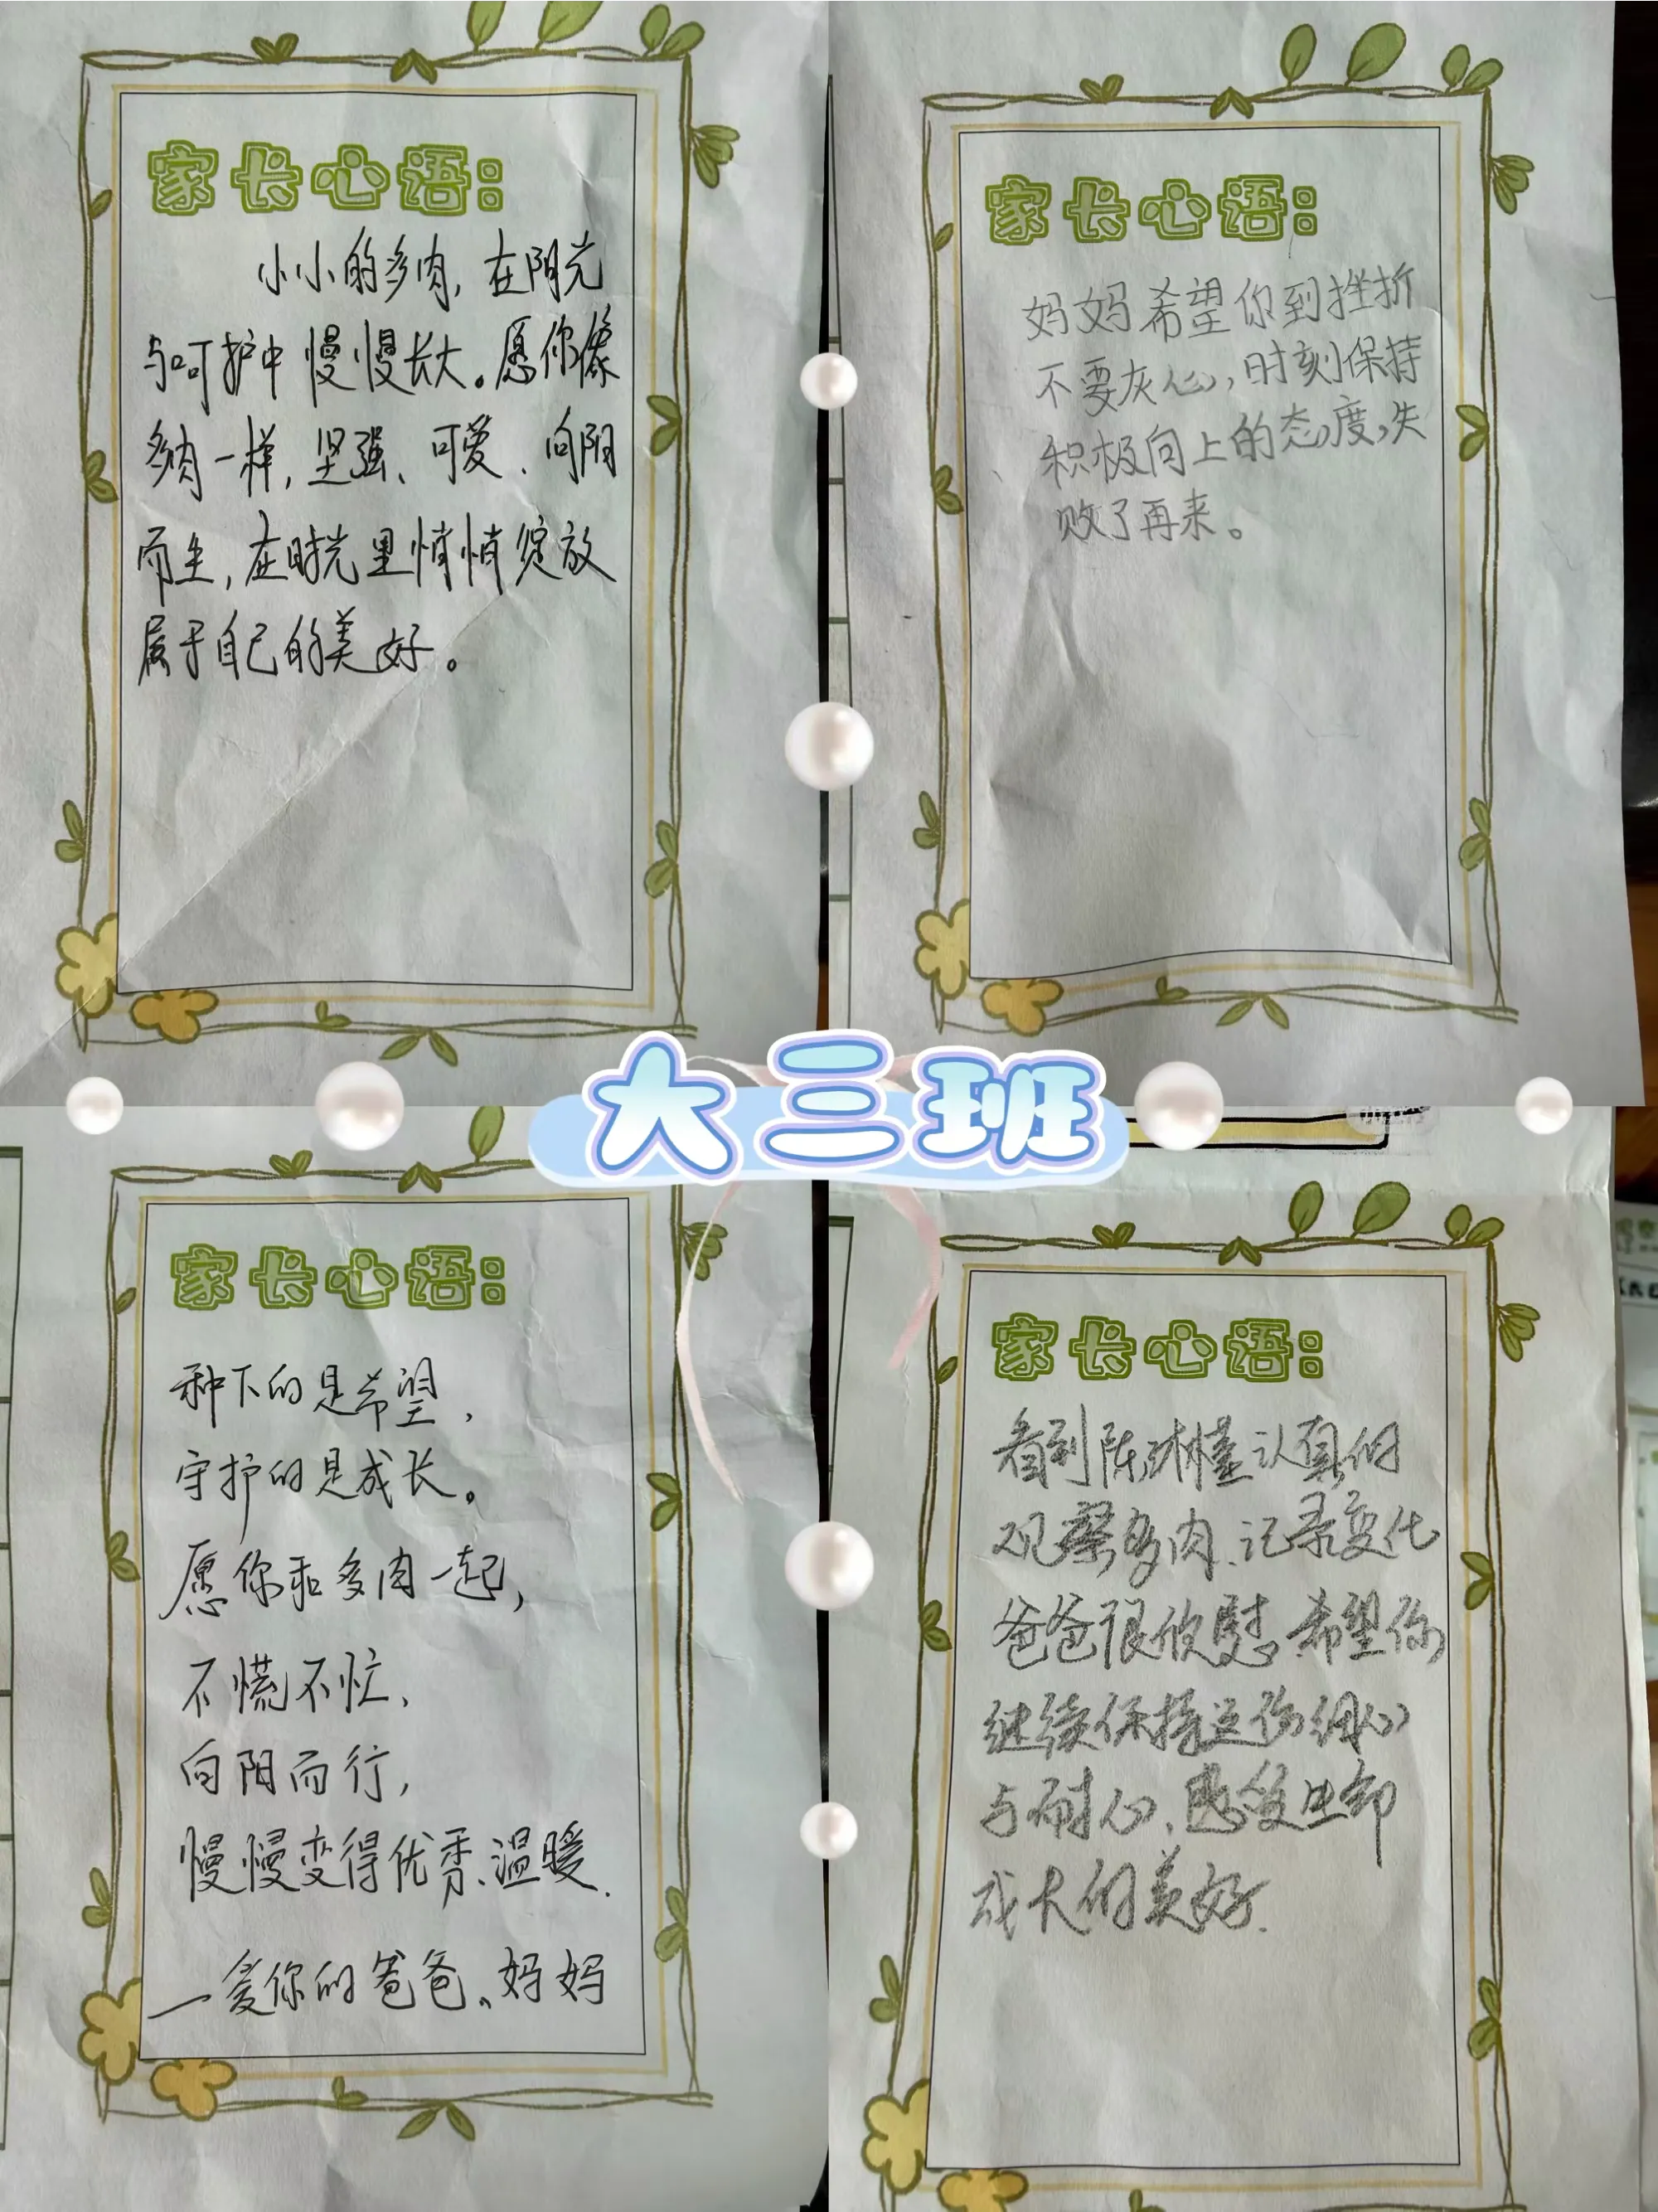 家长心语：
小小的多肉，在阳光
与呵护中慢慢长大。愿你像
多肉一样，坚强、可爱、向阳
而生，在时光里悄悄绽放
属于自己的美好。
家长心语：
妈妈希望你到挫折
不要灰心，时刻保持
积极向上的态度，失
败了再来。
大三班
家长心语：
种下的是希望，
守护的是成长。
愿你和多肉一起，
不慌不忙、
向阳而行，
慢慢变得优秀、温暖.
一爱你的爸爸、妈妈
家长心语：
看到陈琳槿认真的
观察多肉、记录变化
爸爸很欣慰.希望你
继续保持这份细心
与耐心、感受
成长的美好.